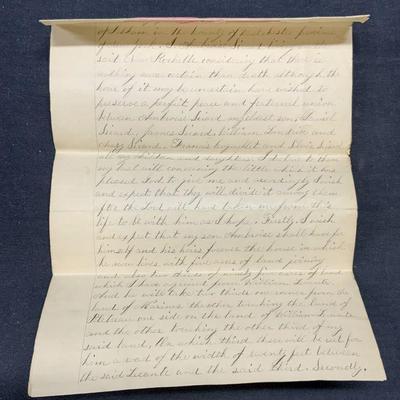 of them in the County of Westchester province
said New Rochelle considering that there is
nothing more certain than death although the
hour of it may be uncertain have wished to
preserve a perfect peace and fraternal union
between Ambrois Sicard my eldest son, Daniel
Sicard, James Sicard, William Landrin and
chas Sicard. Francis Coquillet and Silvie Sicard
all my children and daughters. I declare to them
my last will concerning the little which it was
pleased God to give me and accordingly I wish
and expect that they will divide it among them
for the Lord will have taken me from this
life to be with him as I hope. Firstly. I wish
and expect that my son Ambroise shall have for
himself and his heirs forever the house in which
he now lives, with five acres of land joining
and also two thirds of ninety five acres of land
which I have against from William Lecante
And he will take two thirds on coming from the
land of the other touching the land of
one side on the land of William Lecante
and the other touching the other third of my
said land, On which third there will be set for
him a road of the width of twenty feet between
the said Lecante and the said third. Secondly.